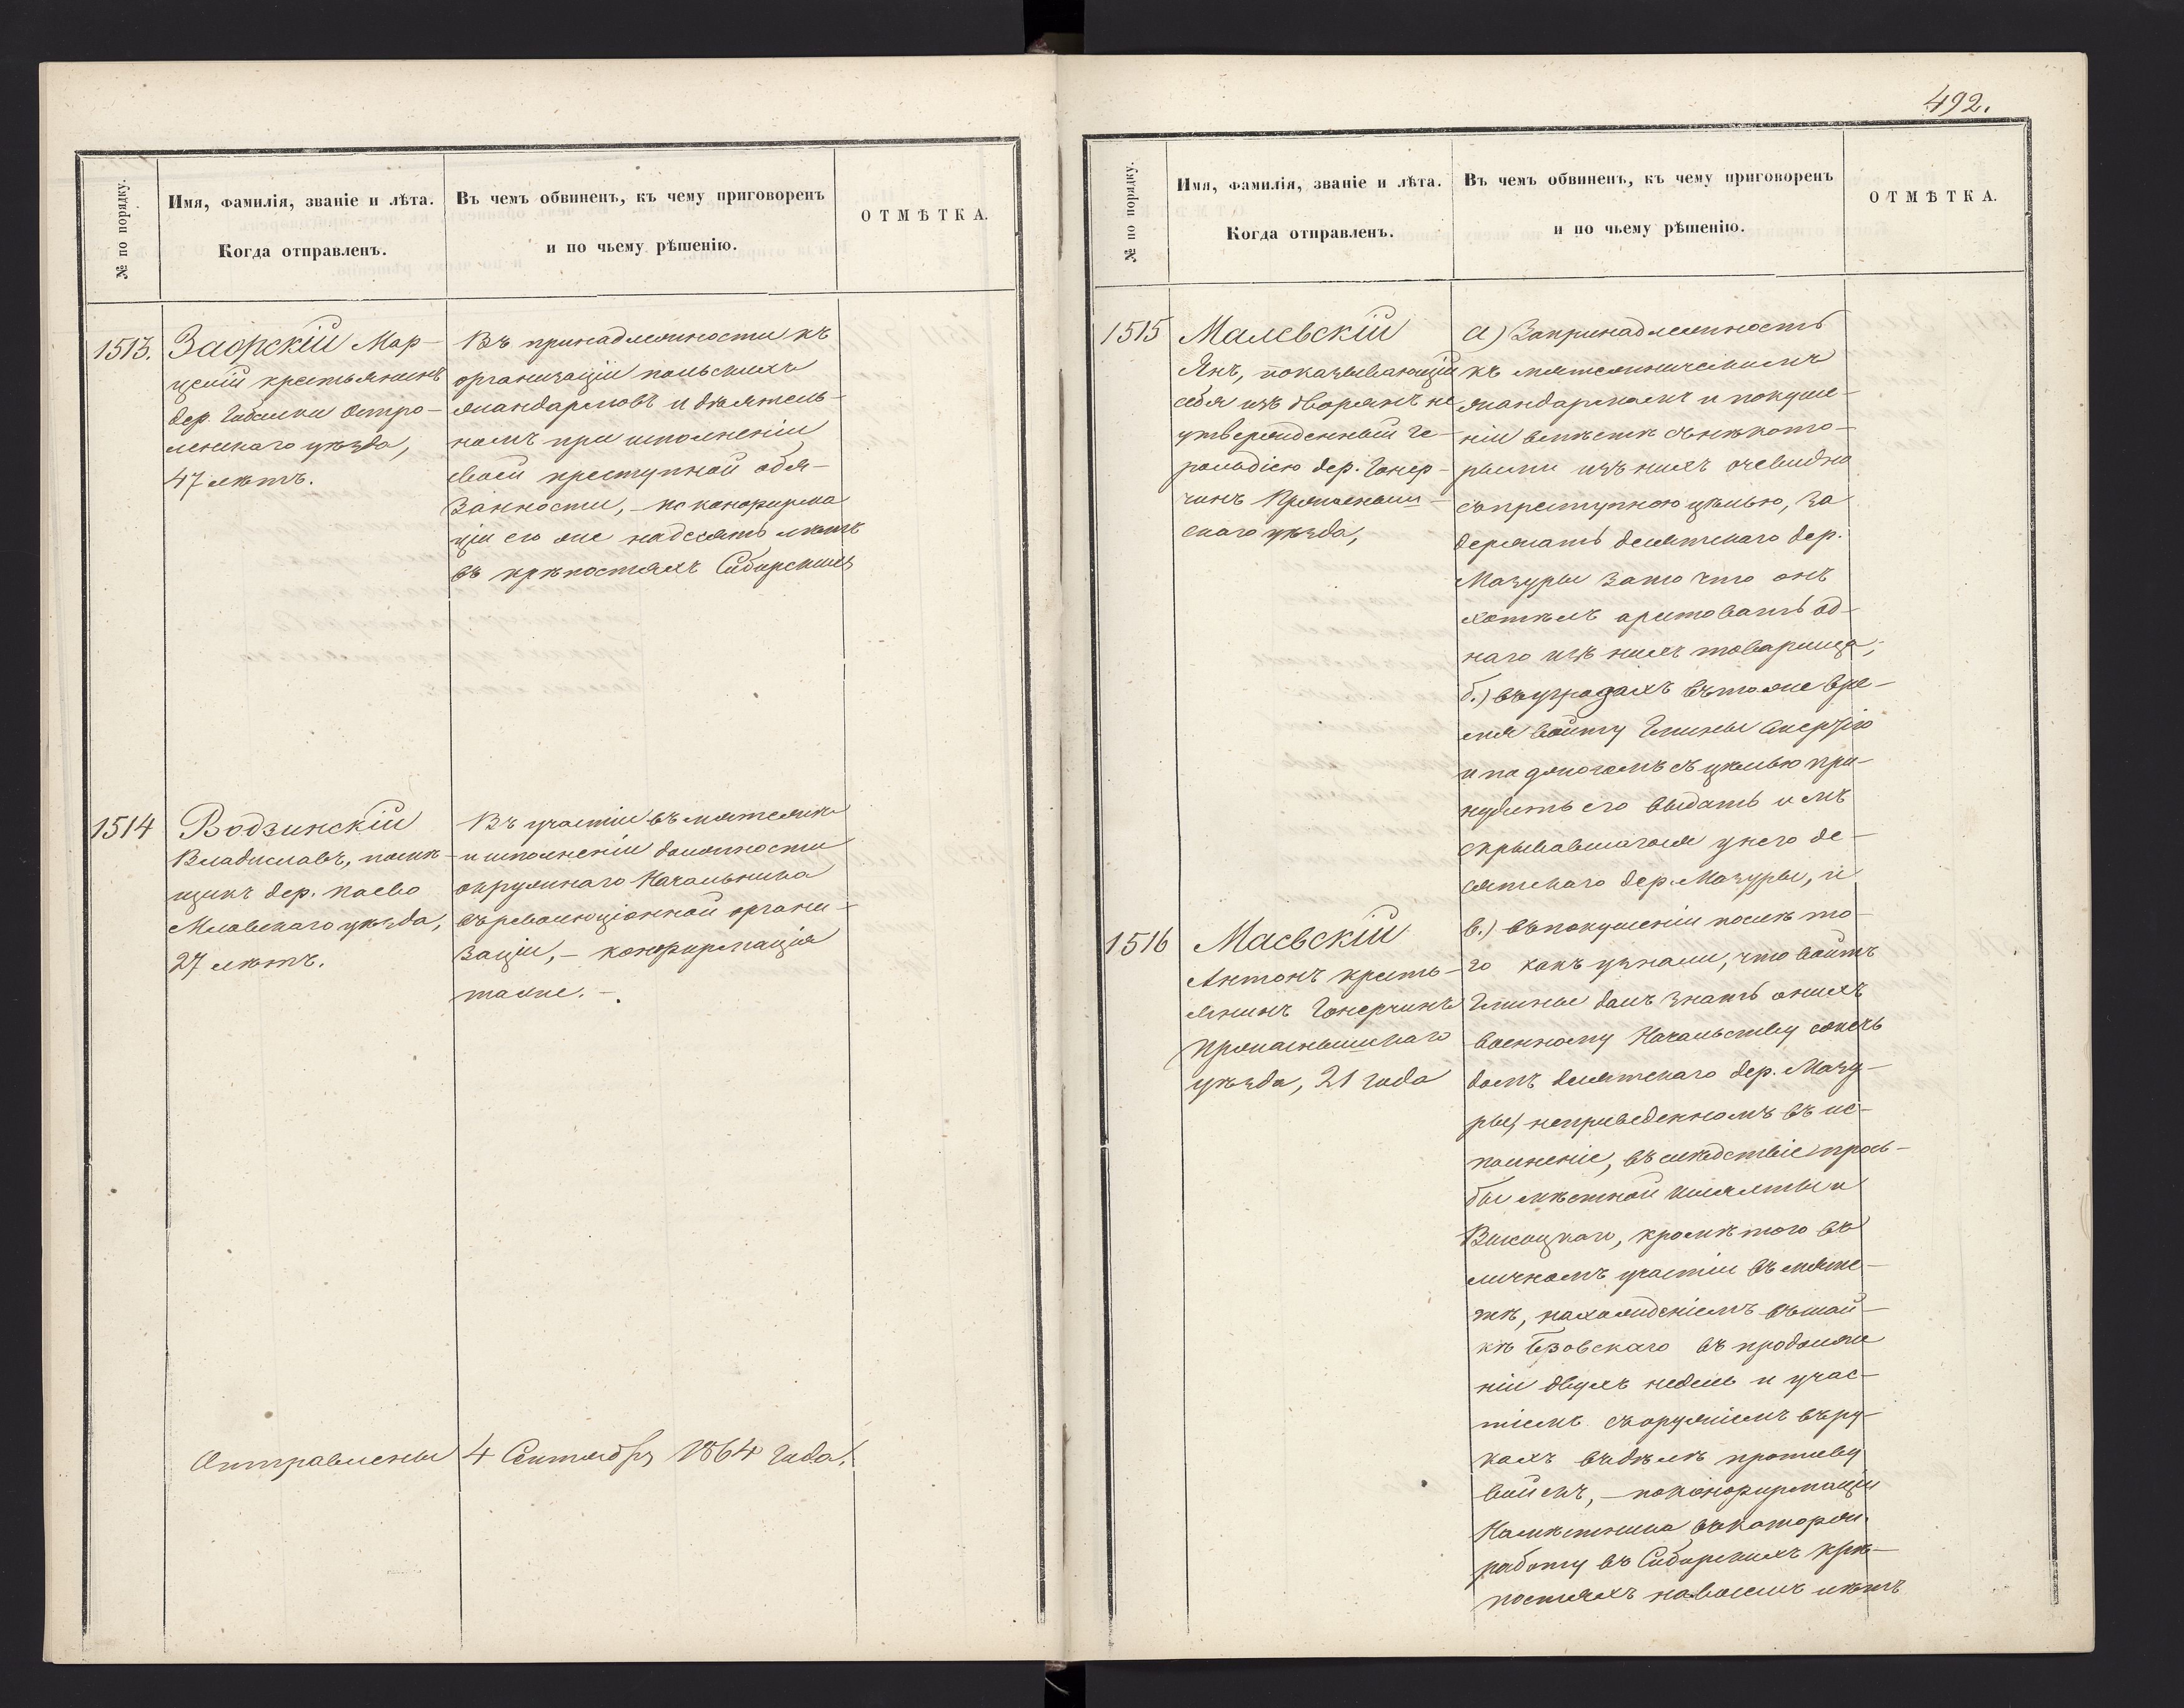 492.
№ по порядку.
Имя, фамилія, званіе и лѣта.
Когда отправленъ.
Въ чемъ обвиненъ, къ чему приговоренъ
и по чьему рѣшенію.
ОТМѢТКА.
1513.
Заорскій Мар-
целій крестьянинъ
дер. Остро-
ленскаго уѣзда,
47 лѣтъ.
Въ принадлежности къ
организаціи польскихъ
жандармовъ и дѣятель-
номъ при исполненіи
своей преступной обя-
занности, – по конфирма
ціи его же на десять лѣтъ
въ крѣпостяхъ Сибирскихъ
1514
Водзинскій
Владиславъ, помѣ-
щикъ дер.
Млавскаго уѣзда,
27 лѣтъ.
Въ участіи въ мятежѣ
и исполненіи должности
окружнаго Начальника
въ революціонной органи-
заціи, – конфирмація
таже. –.
Отправлены 4 Сентября 1864 года.
№ по порядку.
Имя, фамилія, званіе и лѣта.
Когда отправленъ.
Въ чемъ обвиненъ, къ чему приговоренъ
и по чьему рѣшенію.
ОТМѢТКА.
1515
Малевскій
Янъ, показывающій
себя изъ дворянъ не
утвержденный Ге-
рольдіею дер. Гонер-
чинъ Прасныш-
скаго уѣзда,
1516
Маевскій
Антонъ кресть-
янинъ Гонерчинъ
Праснышскаго
уѣзда, 21 года
а) За принадлежность
къ мятежническимъ
жандармамъ и покуше-
ніи вмѣстѣ съ нѣкото-
рыми изъ нихъ очевидно
съ преступною цѣлью, за
держать десятскаго дер.
Мазуры за то что онъ
хотѣлъ арестовать од-
наго изъ нихъ товарища;
б.) въ угрозахъ въ тоже вре-
мя войту Гмины
и съ цѣлью при-
нудить его выдать имъ
скрывавшагося у него де-
сятскаго дер. Мазуры, и
в.) въ покушеніи послѣ то-
го какъ узнали, что войтъ
Гмины далъ знать о нихъ
военному Начальству сжечь
домъ десятскаго дер. Мазу-
ры, неприведенномъ въ ис-
полненіе, въ слѣдствіе прось-
бы мѣстной шляхты и
Высоцкаго, кромѣ того въ
личномъ участіи въ мяте-
жѣ, нахожденіемъ въ шай-
кѣ въ продолже
ніи двухъ недель и учас-
тіемъ съ оружіемъ въ ру-
кахъ въ дѣлѣ противу
войскъ, – по конфирмаціи
Намѣстника въ каторжн.
работу въ Сибирскихъ крѣ-
постяхъ на восемь лѣтъ